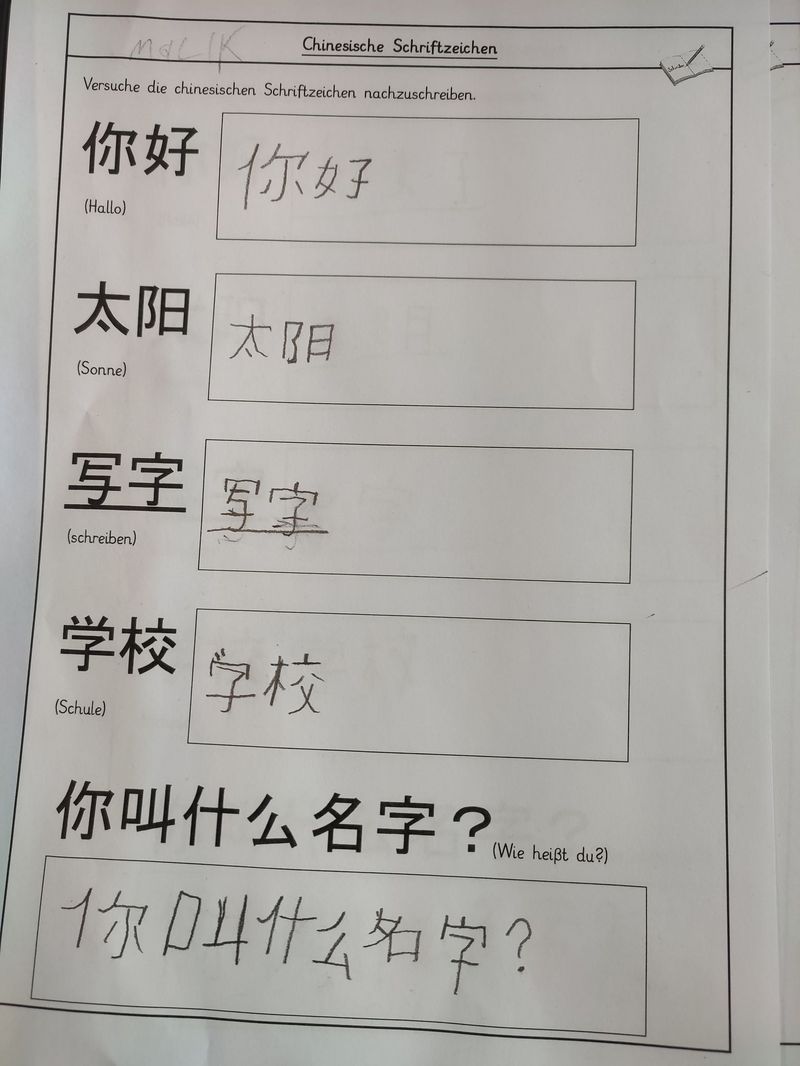 Malik
Chinesische Schriftzeichen
Versuche die chinesischen Schriftzeichen nachzuschreiben.
你好 你好
(Hallo)
太阳 太阳
(Sonne)
写字 写字
(schreiben)
学校 学校
(Schule)
你叫什么名字？(Wie heißt du?)
你叫什么名字?